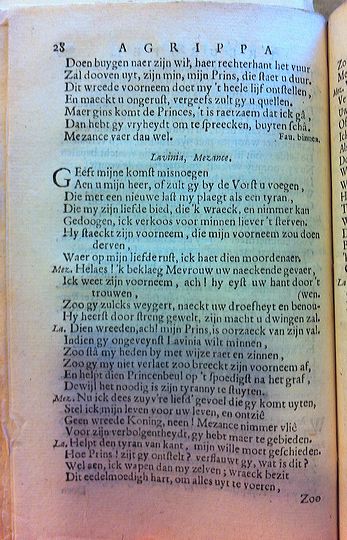 28 AGRIPPA
Doen buygen naer zijn wil, haer rechterhant het vuur
Zal dooven uyt, zijn min, mijn Prins, die staet u duur.
Dit wreede voorneem doet my 't heele lijf ontstellen,
En maeckt u ongerust, vergeefs zult gy u quellen.
Maer gins komt de Princes, 't is raetzaem dat ick gâ,
Dan hebt gy vryheydt om te spreecken, buyten schâ.
Mezance vaer dan wel. Fau. binnen.
Lavinia, Mezance.
Geeft mijne komst misnoegen
Aen u mijn heer, of zult gy by de Vorst u voegen,
Die met een nieuwe last my plaegt als een tyran,
Die my zijn liefde bied, die 'k wraeck, en nimmer kan
Gedoogen, ick verkoos voor minnen liever 't sterven.
Hy staeckt zijn voorneem, die mijn voorneem zou doen
derven,
Waer op mijn liefde rust, ick haet dien moordenaer.
Mez. Helaes! 'k beklaeg Mevrouw uw naeckende gevaer,
Ick weet zijn voorneem, ach! hy eyst uw hant door 't
trouwen, (wen.
Zoo gy zulcks weygert, naeckt uw droefheyt en benou-
Hy heerst door streng gewelt, zijn macht u dwingen zal.
La. Dien wreeden, ach! mijn Prins, is oorzaeck van zijn val.
Indien gy ongeveynst Lavinia wilt minnen,
Zoo stâ my heden by met wijze raet en zinnen,
Zoo gy my niet verlaet zoo breeckt zijn voorneem af,
En helpt dien Princenbeul op 't spoedigst na het graf,
Dewijl het noodig is zijn tyranny te stuyten.
Mez. Nu ick dees zuyv're liefd' gevoel die gy komt uyten,
Stel ick mijn leven voor uw leven, en ontzie
Geen wreede Koning, neen! Mezance nimmer vlie
Voor zijn verbolgentheydt, gy hebt maer te gebieden.
La. Helpt den tyran van kant, mijn wille moet geschieden.
Hoe Prins! zijt gy ontstelt? verflauwt gy, wat is dit?
Wel aen, ick wapen dan my zelven; wraeck bezit
Dit eedelmoedigh hart, om alles uyt te voeren,
Zoo